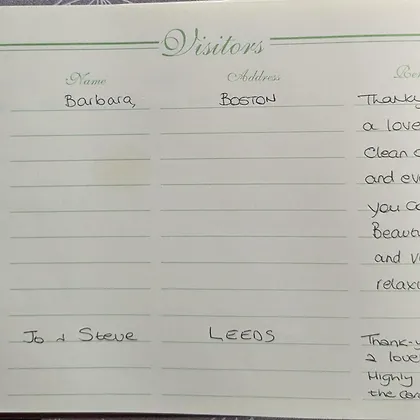 Visitors
Name Address
Barbara, BOSTON Thank
a love
Clean
and ev
you
Beaut
and v
relax
Jo + Steve LEEDS Thank-y
a love
Highly
the